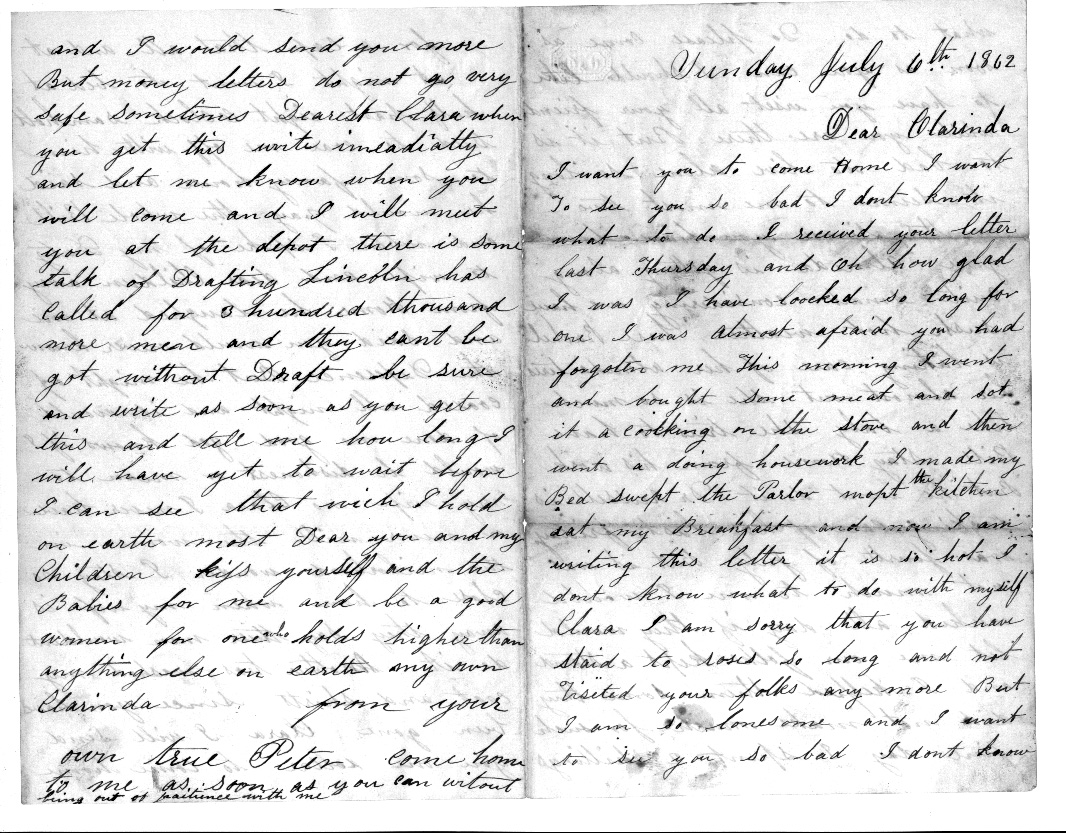 Sunday July 6th 1862
Dear Clarinda
I want you to come Home I want
To see you so bad I dont know
what to do I received your letter
last Thursday and Oh how glad
I was I have loocked so long for
one I was almost afraid you had
forgotten me This morning I went
and bought some meat and sot
it a coocking on the stove and then
went a doing housework I made my
Bed swept the Parlor mopt the kitchen
eat my Breakfast and now I am
writing this letter it is so hot I
dont know what to do with myself
Clara I am sorry that you have
staid to roses so long and not
Visited your folks any more But
I am so lonesome and I want
to see you so bad I dont know
and I would send you more
But money letters do not go very
safe sometimes Dearest Clara when
you get this write imeadiatly
and let me know when you
will come and I will meet
you at the depot there is some
talk of Drafting Lincoln has
Called for 3 hundred thousand
more men and they cant be
got without Draft be sure
and write as soon as you get
this and tell me hou long I
will have yet to wait before
I can see that wich I hold
on earth most Dear you and my
Children kiss yourself and the
Babies for me and be a good
women for one who holds higher than
anything else on earth my own
Clarinda from your
own true Peter come home
to me as soon as you can witout
being out of paitience with me